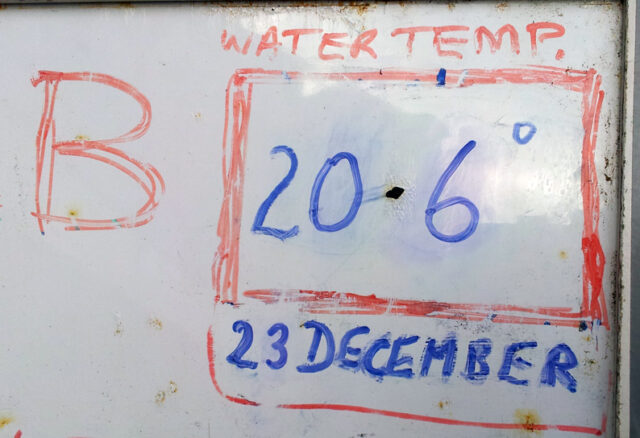 WATER TEMP.
B
20.6°
23 DECEMBER